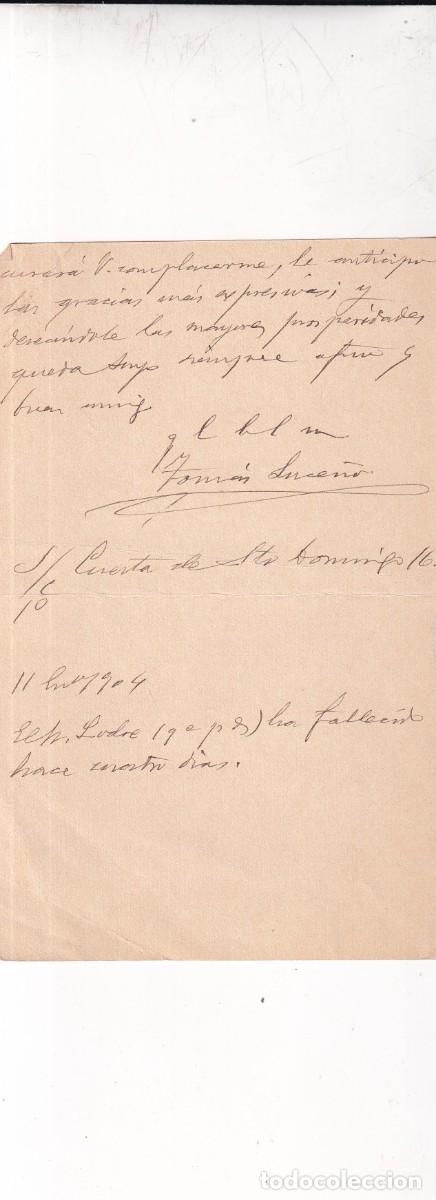 V. complacerme, le anticipo
las gracias más expresivas; y
deseándole las mayores prosperidades
queda suyo siempre afmo y
buen amig
q l b l m
Tomás Luceño
S/C Cuesta de Sto Domingo 16.
1º
11 1904
El P. (q e p d) ha fallecido
hace cuatro días.
todocoleccion